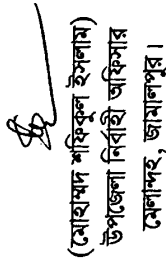 (মোহাম্মদ শফিকুল ইসলাম)
উপজেলা নির্বাহী অফিসার
মেলান্দহ, জামালপুর।